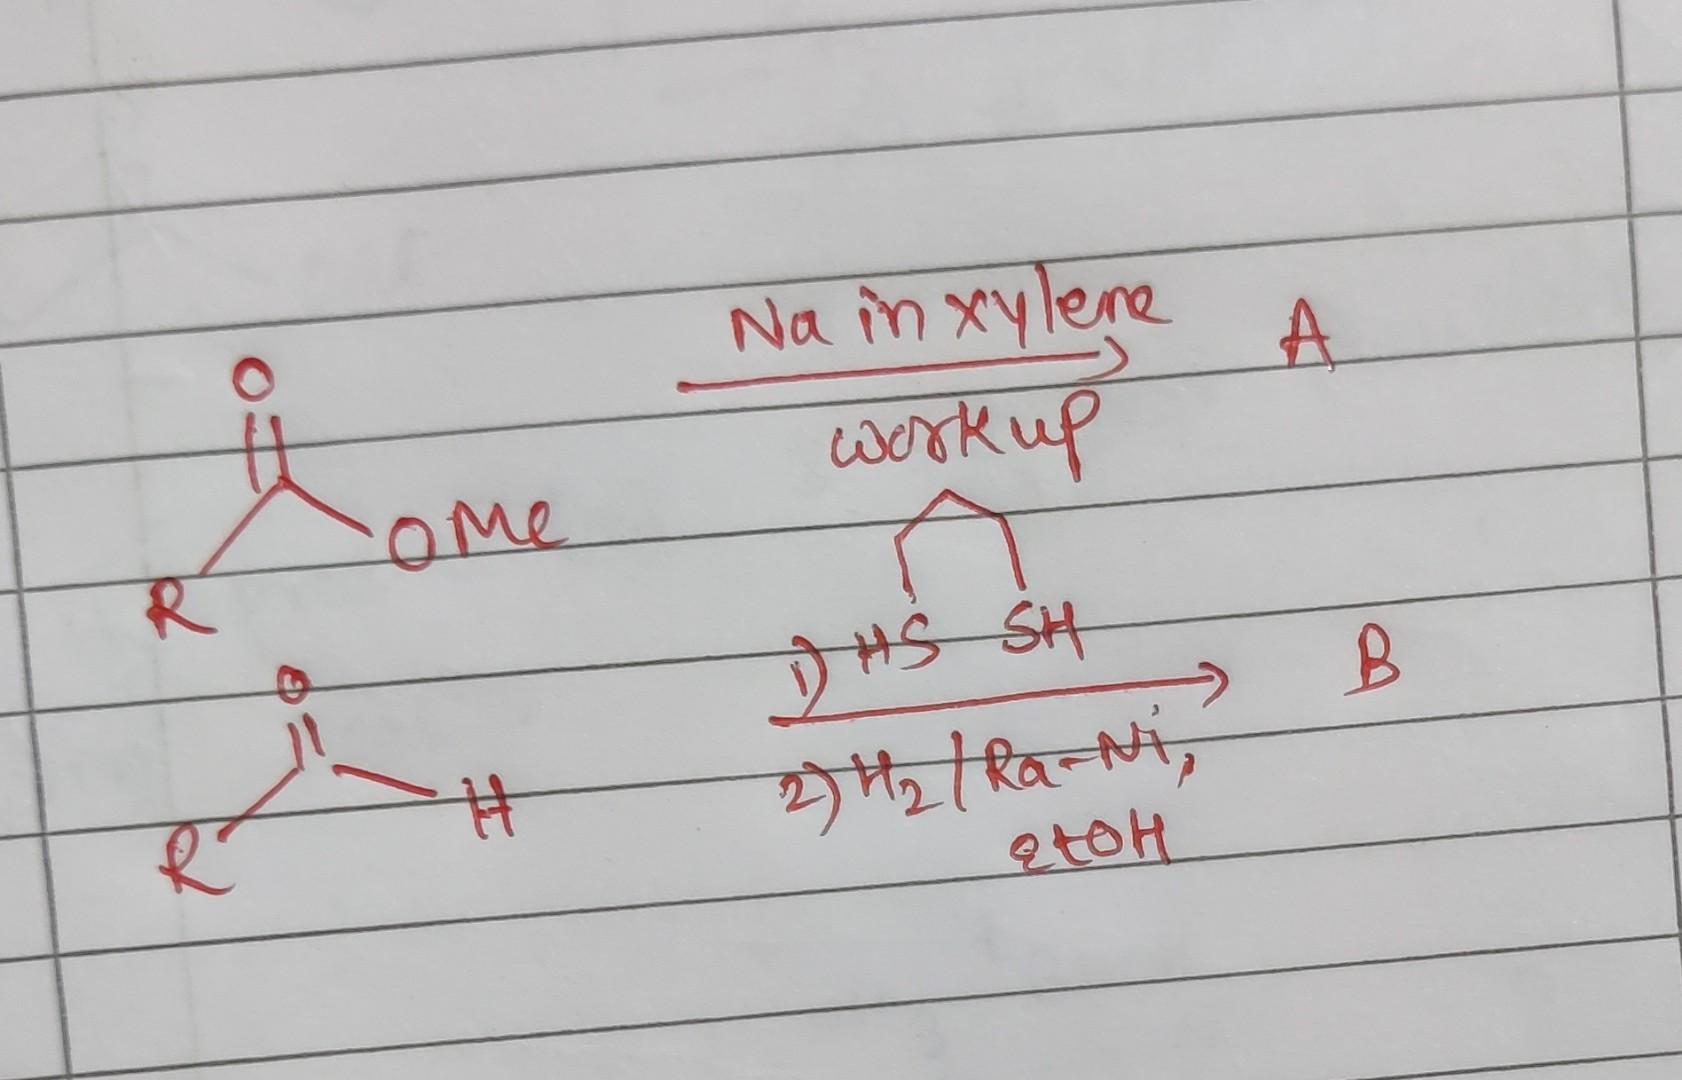 Na in xylene
A
workup
O
OMe
R
1) HS SH
B
2) H2 / Ra-Ni,
EtOH
O
H
R